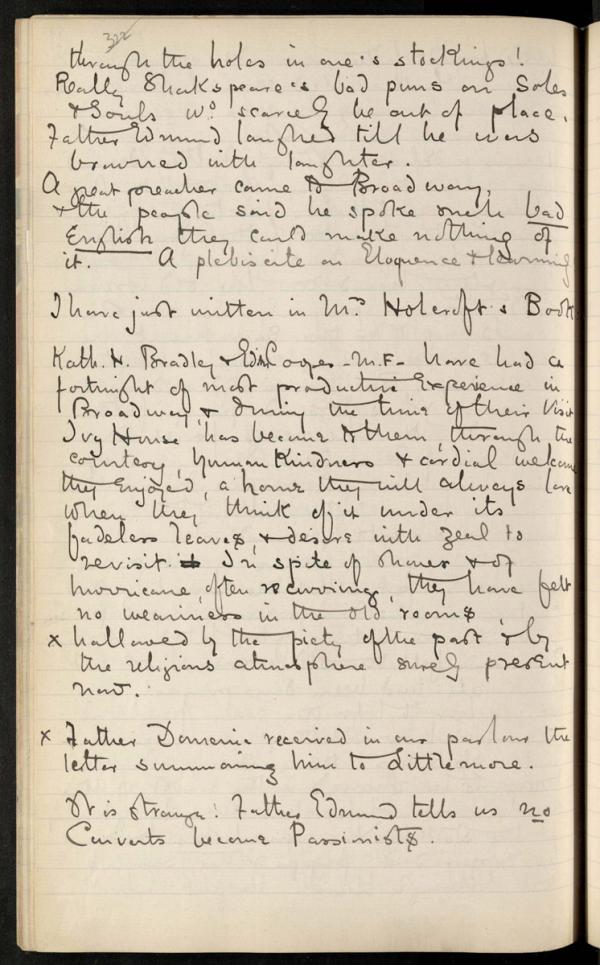 322
through the holes in one's stockings!
Really Shakspeare's bad puns on Soles
& Souls wd scarcely be out of place.
Father Edmund laughed till he was
browned with laughter.
A great preacher came to Broadway,
& the people said he spoke such bad
English they could make nothing of
it. A plebiscite on Eloquence & learning
I have just written in Mrs Holcroft's Book
Kath. H. Bradley & Edith Cooper - M.F - have had a
fortnight of most productive Experience in
Broadway, & during the time of their Visit
Ivy House has become to them, through the
courtesy, human Kindness & cordial welcome
they Enjoyed, a home they will always love
when they think of it under its
fadeless leaves, & desire with zeal to
revisit. In spite of shower & of
hurricane, often recurring, they have felt
no weariness in the old rooms,
x hallowed by the piety of the past & by
the religious atmosphere surely present
now.
x Father Domenic received in our parlour the
letter summoning him to Littlemore.
It is strange! Father Edmund tells us no
Converts become Passionists.